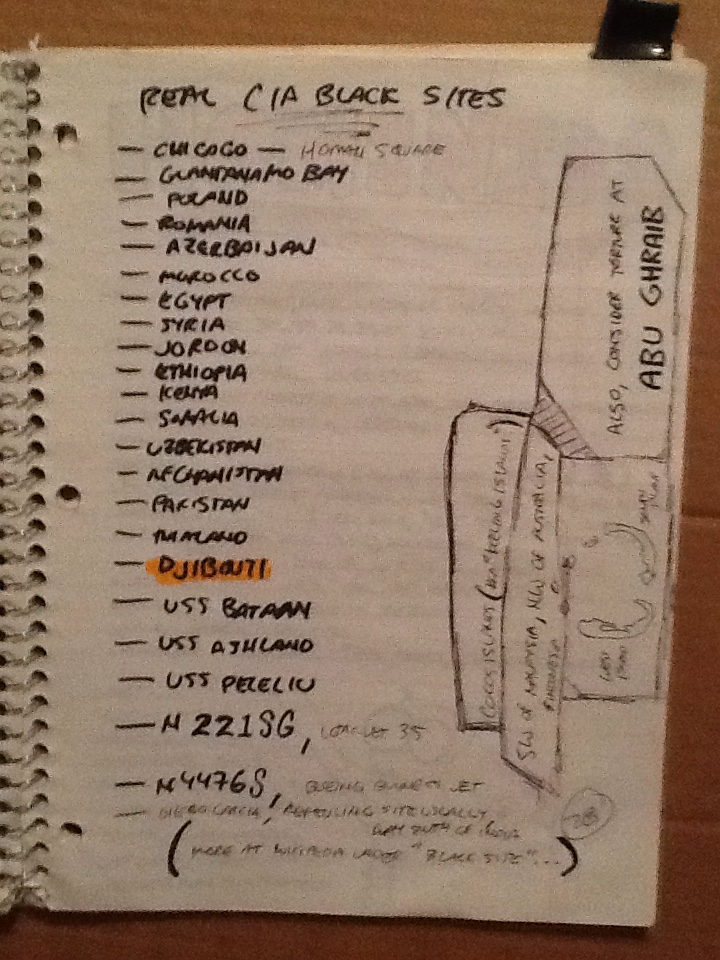 REAL CIA BLACK SITES
— CHICAGO — HOMAN SQUARE
— GUANTANAMO BAY
— POLAND
— ROMANIA
— AZERBAIJAN
— MOROCCO
— EGYPT
— SYRIA
— JORDON
— ETHIOPIA
— KENYA
— SOMALIA
— UZBEKISTAN
— AFGHANISTAN
— PAKISTAN
— THAILAND
— DJIBOUTI
— USS BATAAN
— USS ASHLAND
— USS PELELIU
— N221SG, LEARJET 35
— N4476S, BOEING BUSINESS JET
— DIEGO GARCIA, REFUELING SITE
WAY SOUTH OF INDIA
(MORE AT WIKIPEDIA UNDER "BLACK SITE"...)
ALSO, CONSIDER TORTURE AT
ABU GHRAIB
COCOS ISLANDS ("KEELING ISLANDS")
SW OF MALAYSIA, NW OF AUSTRALIA,
INDONESIA
WEST
ISLAND